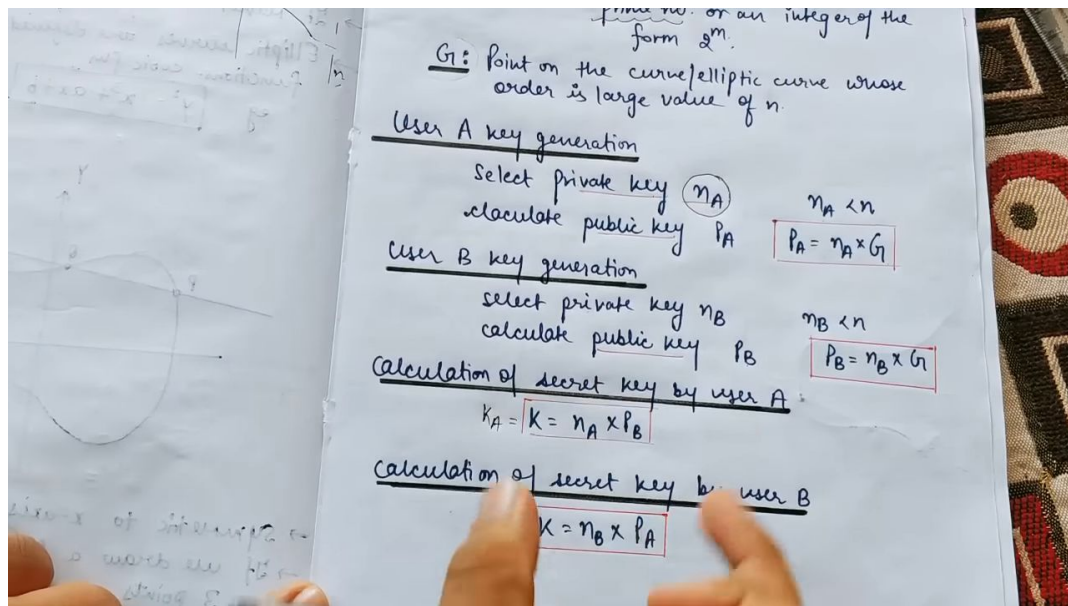 prime no. or an integer of the
form 2^m.
G: Point on the curve/elliptic curve whose
order is large value of n.
User A key generation
Select private key nA nA < n
claculate public key PA PA = nA × G
User B key generation
select private key nB nB < n
calculate public key PB PB = nB × G
Calculation of secret key by user A
KA = K = nA × PB
Calculation of secret key by user B
K = nB × PA